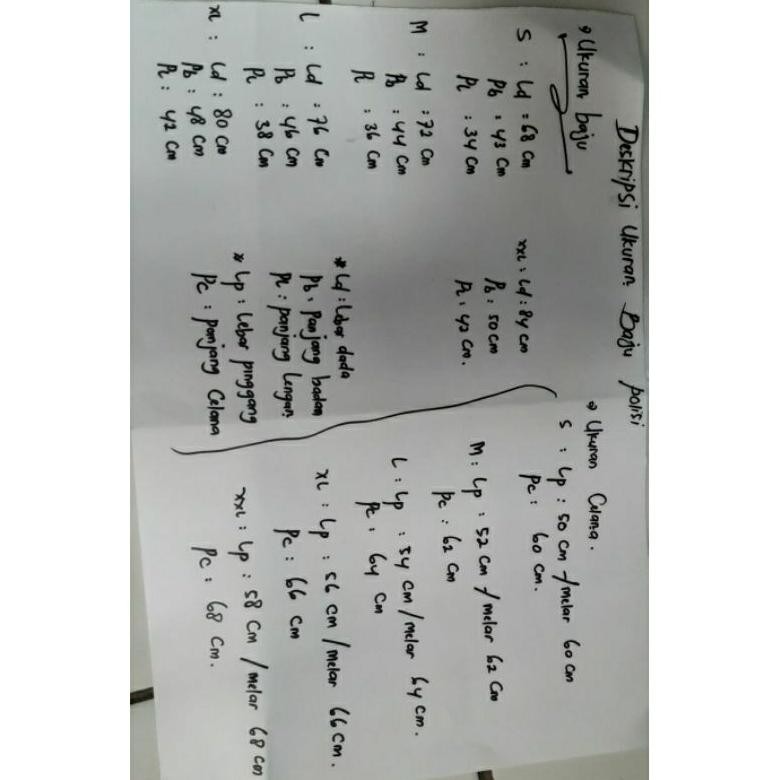 Deskripsi Ukuran Baju polisi
→ Ukuran baju
S : Ld : 68 cm
Pb : 43 cm
PL : 34 cm
M : Ld : 72 cm
Pb : 44 cm
PL : 36 cm
L : Ld : 76 cm
Pb : 46 cm
PL : 38 cm
XL : Ld : 80 cm
Pb : 48 cm
PL : 42 cm
XXL : Ld : 84 cm
Pb : 50 cm
PL : 42 cm.
* Ld : Lebar dada
Pb : Panjang badan
PL : panjang Lengan
* Lp : Lebar pinggang
Pc : panjang Celana
→ Ukuran Celana.
S : Lp : 50 cm / melar 60 cm
Pc : 60 cm.
M : Lp : 52 cm / melar 62 cm
Pc : 62 cm
L : Lp : 54 cm / melar 64 cm.
Pc : 64 cm
XL : Lp : 56 cm / melar 66 cm.
Pc : 66 cm
XXL : Lp : 58 cm / melar 68 cm
Pc : 68 cm.